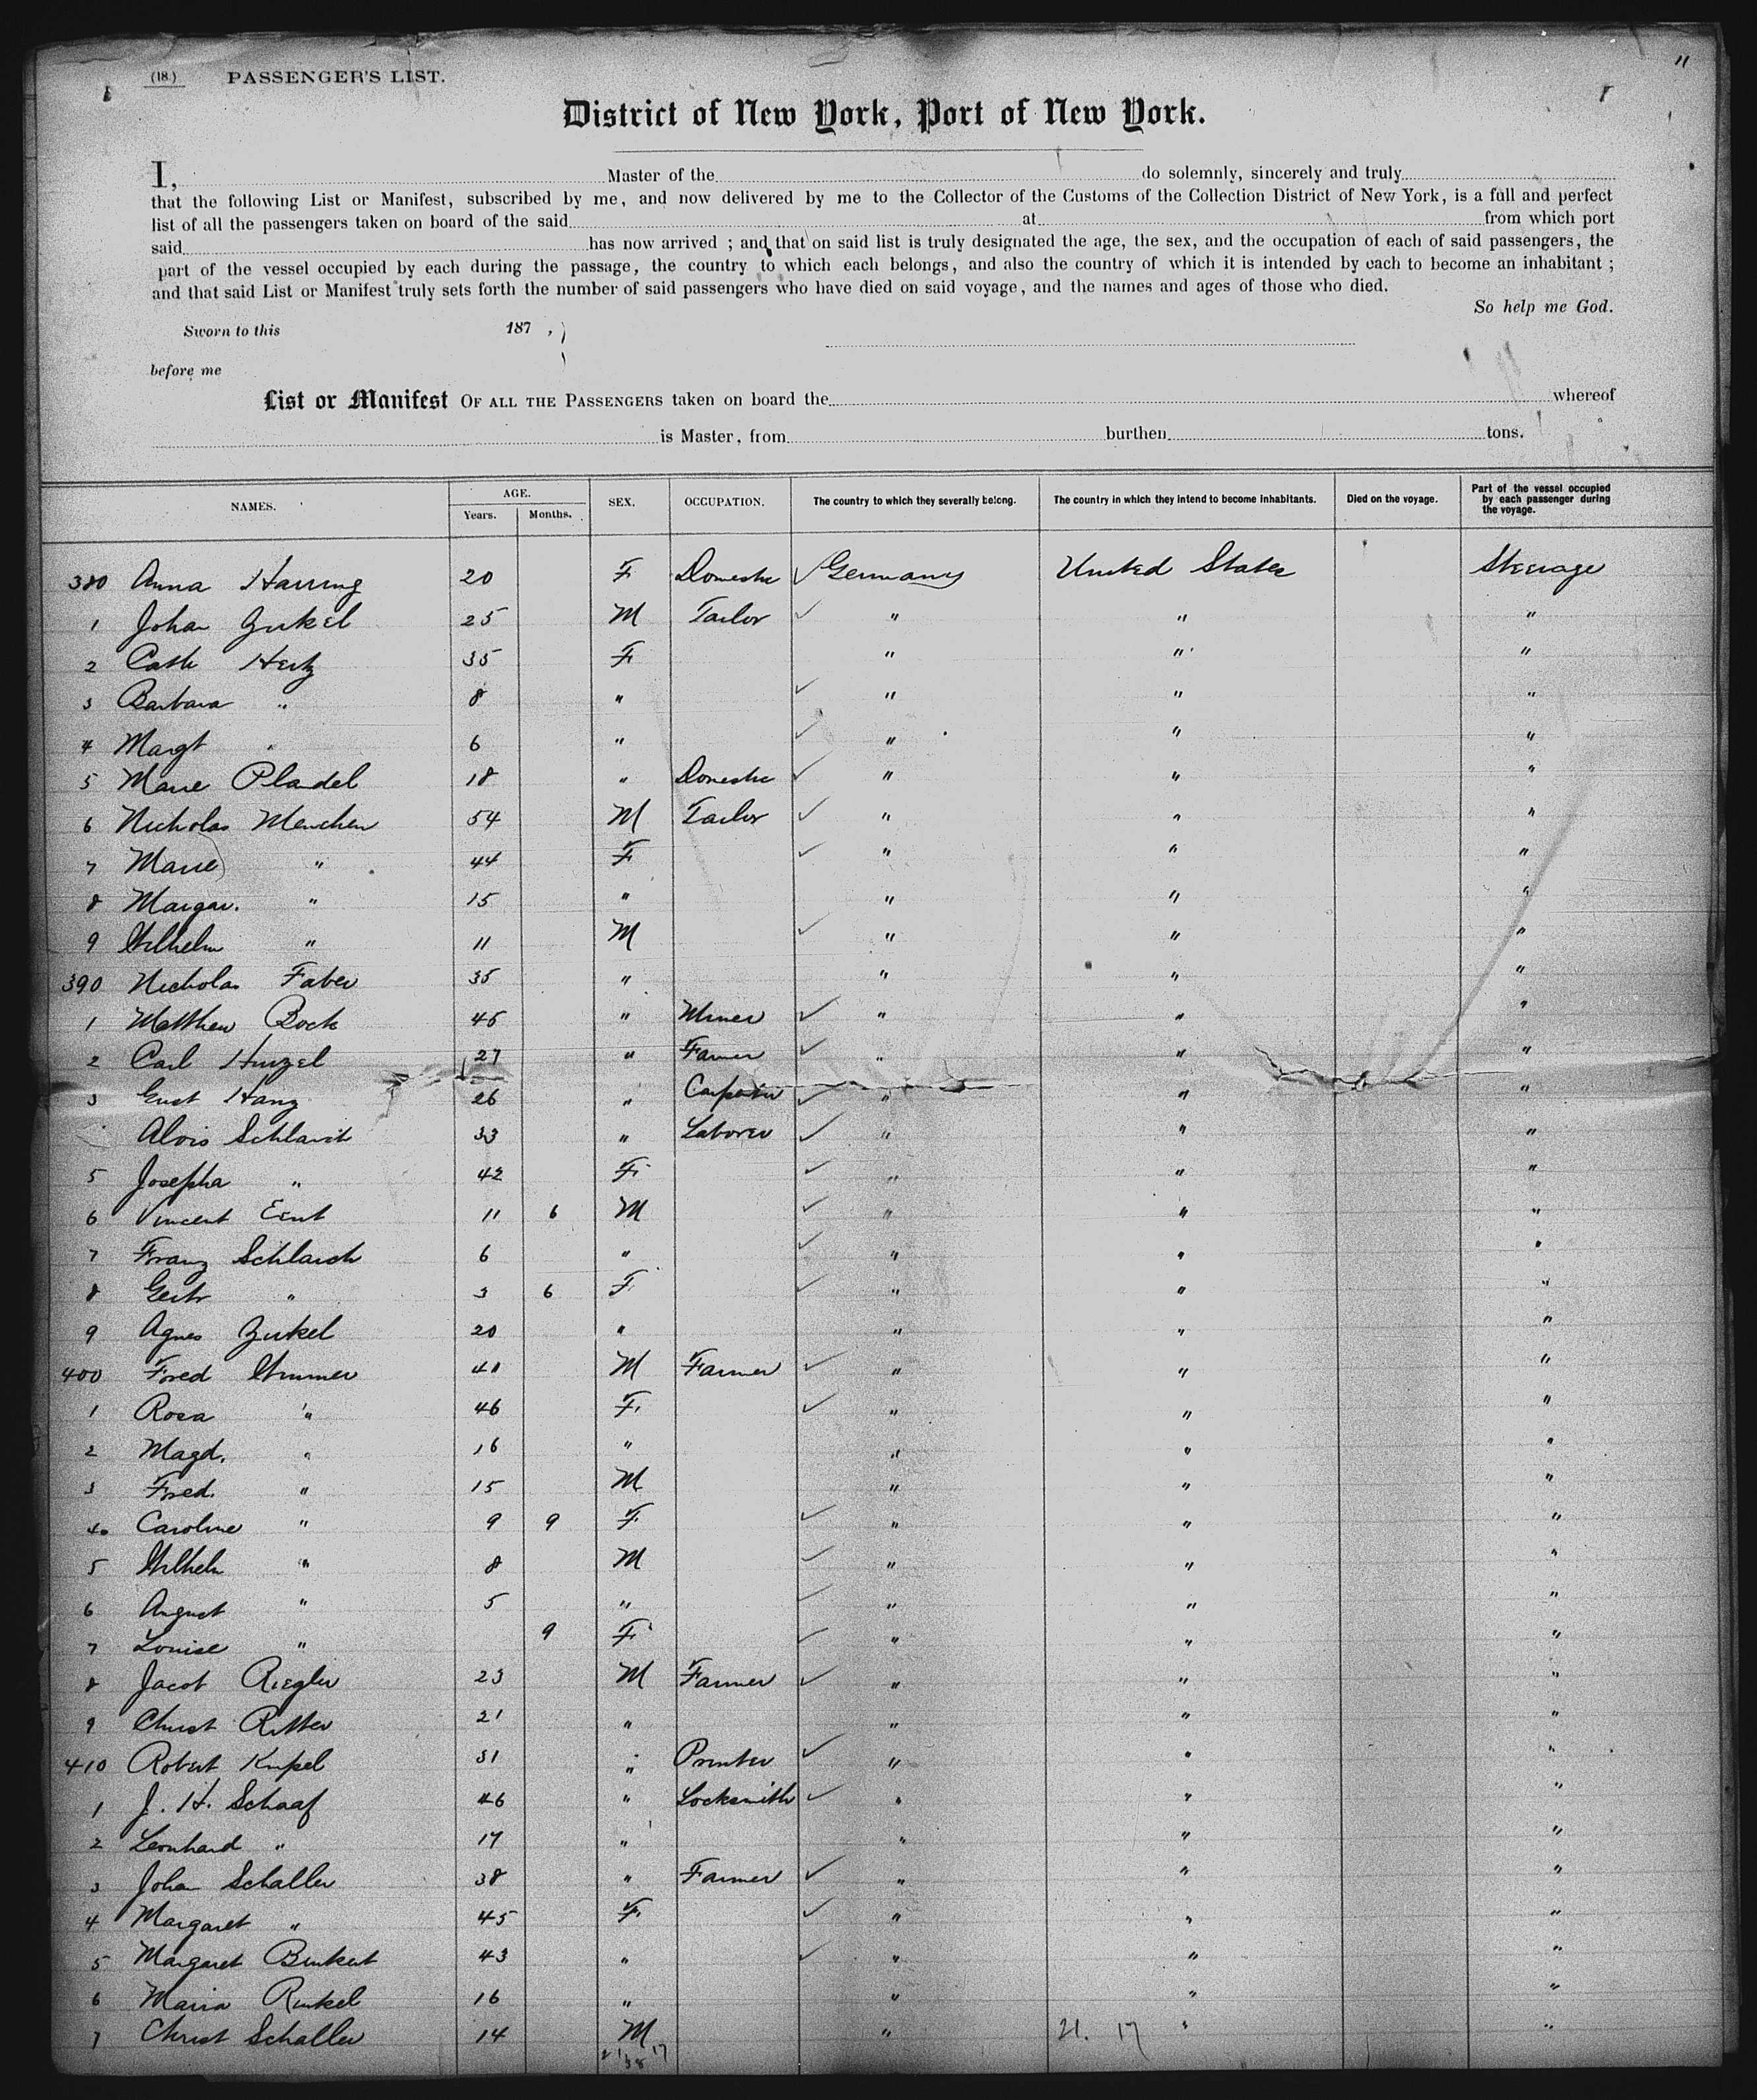 11
(18.) PASSENGER'S LIST.
District of New York, Port of New York.
I, Master of the do solemnly, sincerely and truly
that the following List or Manifest, subscribed by me, and now delivered by me to the Collector of the Customs of the Collection District of New York, is a full and perfect
list of all the passengers taken on board of the said at from which port
said has now arrived ; and that on said list is truly designated the age, the sex, and the occupation of each of said passengers, the
part of the vessel occupied by each during the passage, the country to which each belongs, and also the country of which it is intended by each to become an inhabitant ;
and that said List or Manifest truly sets forth the number of said passengers who have died on said voyage, and the names and ages of those who died.
So help me God.
Sworn to this 187 ,
before me
List or Manifest OF ALL THE PASSENGERS taken on board the whereof
is Master, from burthen tons.
NAMES. AGE. Years. Months. SEX. OCCUPATION. The country to which they severally belong. The country in which they intend to become inhabitants. Died on the voyage. Part of the vessel occupied by each passenger during the voyage.
380 Anna 20 F Domestic ✓ Germany United States Steerage
1 Johan 25 M Tailor ✓ " " "
2 Cath Hertz 35 F " " "
3 Barbara " 8 " ✓ " " "
4 Margt " 6 " ✓ " " "
5 Marie Pladel 18 " Domestic ✓ " " "
6 Nicholas Menchen 54 M Tailor ✓ " " "
7 Marie " 44 F ✓ " " "
8 Margar. " 15 " " " "
9 Wilhelm " 11 M ✓ " " "
390 Nicholas Faber 35 " " " "
1 Matthew Bock 45 " Miner ✓ " " "
2 Carl 27 " Farmer ✓ " " "
3 Gust Hang 26 " Carpenter ✓ " " "
Alois 33 " Laborer ✓ " " "
5 Josepha " 42 F ✓ " " "
6 Vincent 11 6 M ✓ " " "
7 Franz Schlaich 6 " ✓ " " "
8 Gertr " 3 6 F ✓ " " "
9 Agnes Zirkel 20 " " " "
400 Fred Wimmer 41 M Farmer ✓ " " "
1 Rosa " 46 F ✓ " " "
2 Magd. " 16 " " " "
3 Fred. " 15 M " " "
4 Caroline " 9 9 F ✓ " " "
5 Wilhelm " 8 M ✓ " " "
6 August " 5 " ✓ " " "
7 Louise " 9 F ✓ " " "
8 Jacob Riegler 23 M Farmer ✓ " " "
9 Christ Ritter 21 " " " "
410 Robert 31 " Printer ✓ " " "
1 J. H. Schaaf 46 " Locksmith ✓ " " "
2 Leonhard " 17 " " " "
3 Johan Schaller 38 " Farmer ✓ " " "
4 Margaret " 45 F ✓ " " "
5 Margaret 43 " ✓ " " "
6 Maria Runkel 16 " " " "
7 Christ Schaller 14 M " " "
21. 17
21 17
38